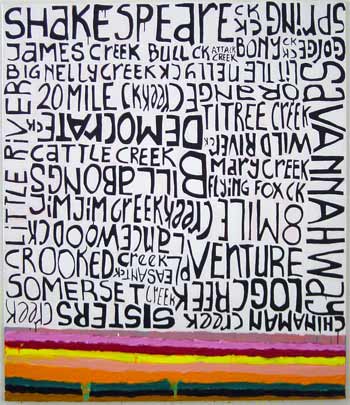 SHAKESPEARE CK
SPRING CK
JAMES CREEK BULL CK ATTACK CREEK BONY CK
GORGE CK
BIG NELLY CREEK
LITTLE NELLY CREEK
SAVANNAH WAY
LITTLE RIVER
20 MILE CK
ORANGE CREEK
DEMOCRATE CK
TITREE CREEK
WILD RIVER CK
CATTLE CREEK
MARY CREEK
BILLABONG
FLYING FOX CK
JIM JIM CREEK
8 MILE CREEK
LANCEWOOD CK
CROOKED CREEK
PLEASANT CK
VENTURE
SOMERSET CREEK
LOG CREEK
SISTERS CREEK
CHINAMAN CREEK